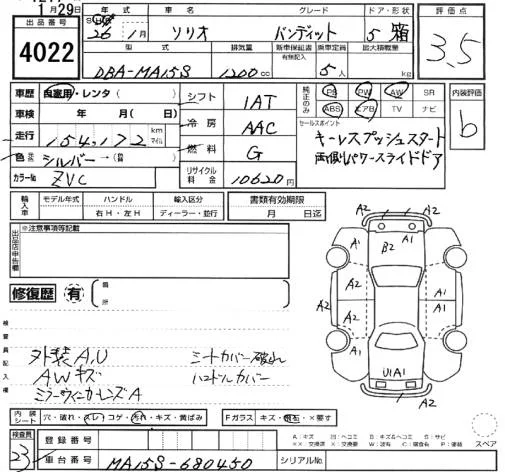 1月29日
出品番号
4022
年式 車名 グレード ドア・形状
26年 1月 ソリオ バンディット 5 箱
型式 排気量 新車保証書 有無記入 乗車定員 最大積載量
DBA-MA15S 1200cc 5人 kg
評価点
3.5
車歴 自家用・レンタ( )
車検 年 月( 日)
走行 154,172 km マイル
色 シルバー→(替 )
カラーNo ZVC
シフト 1AT
冷房 AAC
燃料 G
リサイクル料金 10620円
純正のみ PS PW AW SR
ABS エアB TV ナビ
セールスポイント
キーレスプッシュスタート
両側パワースライドドア
内装評価
b
輸入車 モデル年式 ハンドル 輸入区分
右H・左H ディーラー・並行
書類有効期限
月 日迄
出品店申告欄
※注意事項等記載
修復歴 有
箇所
検査員記入欄
外装A,U シートカバー破れ
AWキズ ハンドルカバー
ミラーウィンカーレンズA
A2 A2
B2 A1
A1 A1
A2 A1
A2 A2
A1 A1
U1 A1
A2 A2
内装シート 穴・破れ・スレ・コゲ・汚れ・キズ・黄ばみ
Fガラス キズ・飛石・×要す
検査員
23
登録番号
車台番号 MA15S-680450
シリアルNo.
A:キズ U:ヘコミ B:キズ&ヘコミ S:サビ
××:交換済 X:交換要 W:波有 C:腐食有 P:塗装
スペア